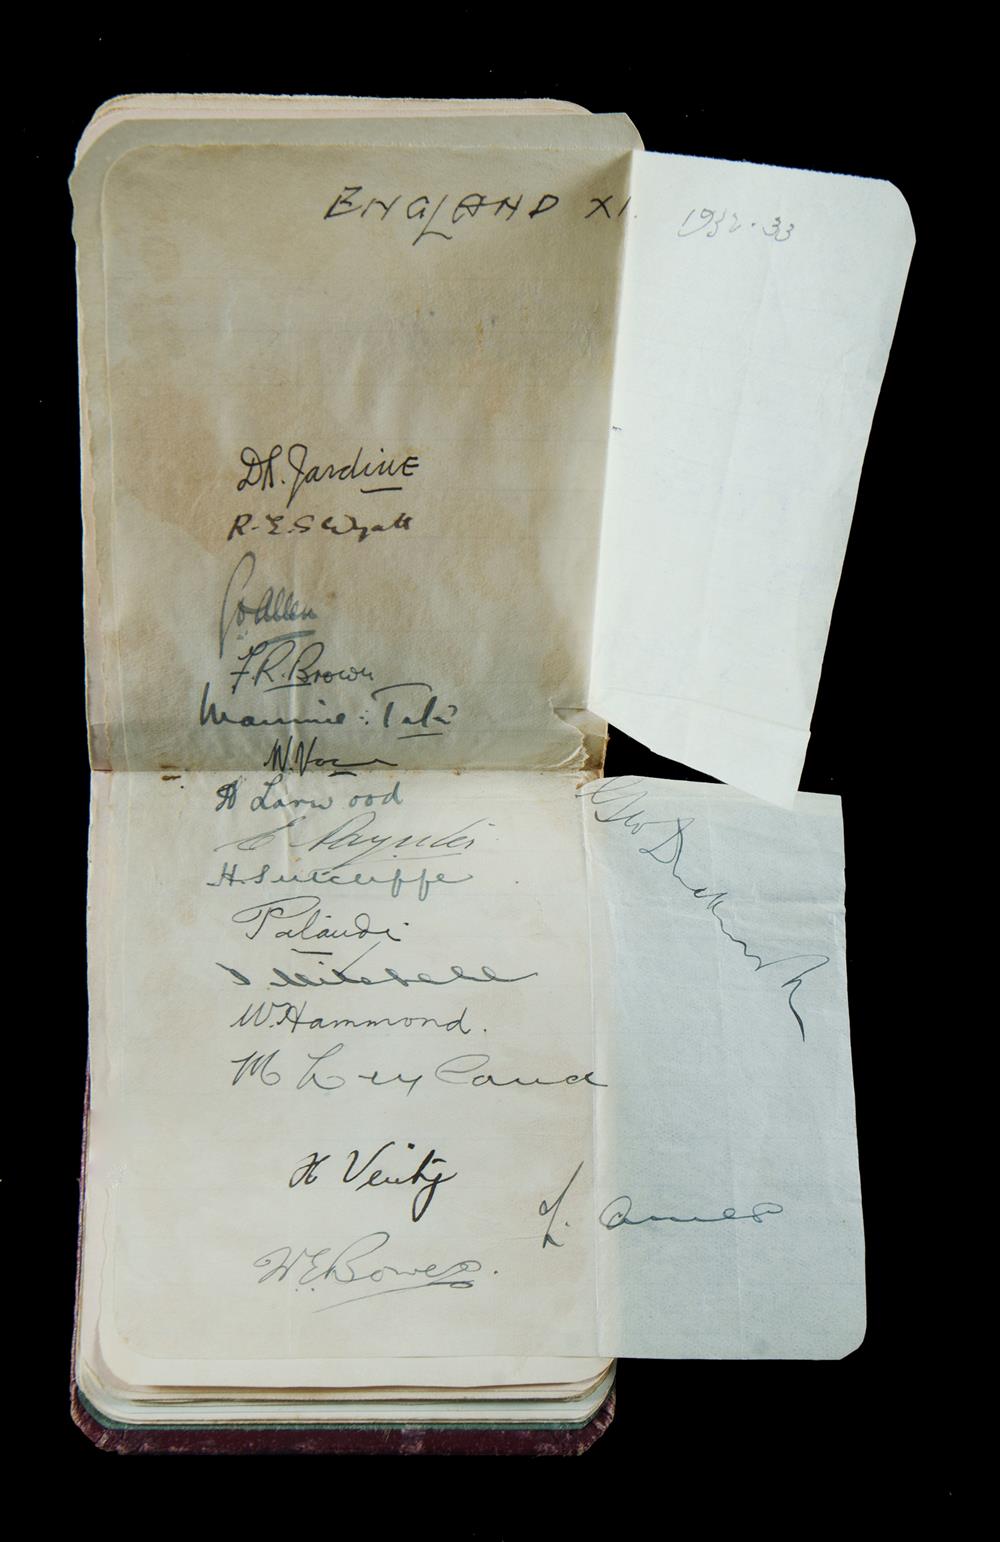 ENGLAND XI. 1932-33
D.R. Jardine
R.E.S. Wyatt
G.O. Allen
F.R. Brown
Maurice Tate
W. Voce
H Larwood
E Paynter
H. Sutcliffe
Geo Duckworth
Pataudi
T. Mitchell
W. Hammond.
M Leyland
H Verity
L. Ames
W.E. Bowes.